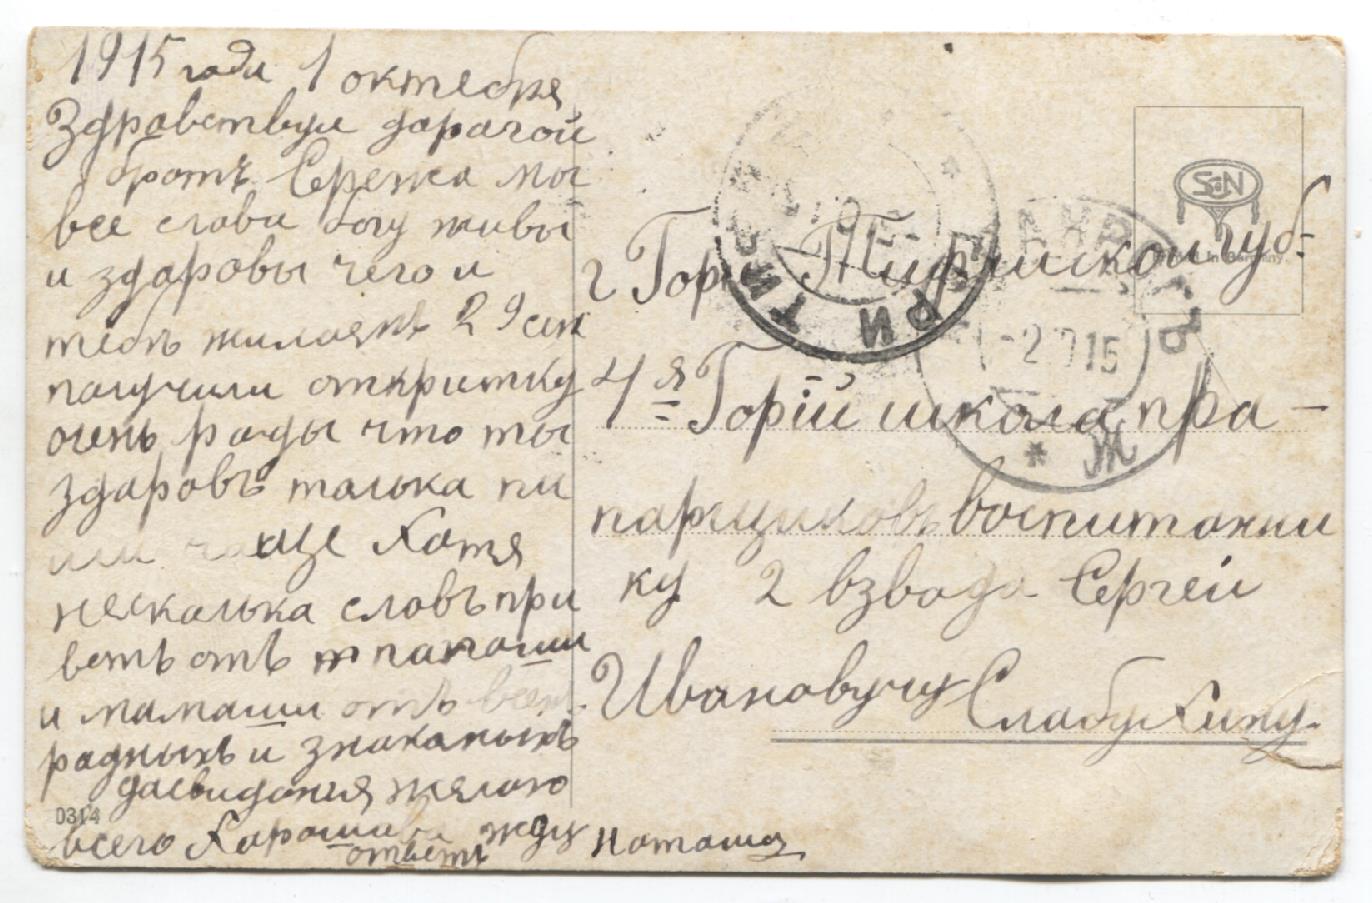 1915 года 1 октебря
Здравствуи дарагой
братъ Сережа мы
все слава богу живы
и здаровы чего и
тебѣ жилаямъ 29 сен
палучили открытку
очень рады что ты
здаровъ толька пи
ши чаще Хотя
несколька словъ при
ветъ отъ папаши
и мамаши отъ всех
радныхъ и знакомыхъ
дасвидания желаю
всего Харошава жду
ответъ
Наташа
г Гори Тифлиской губ-
4я Горій школа пра-
парщиковъ воспитанни
ку 2 взвода Сергею
Ивановучу Слабухину.
ГОРИ ТИФ
ТАГАНРОГЪ
-2 10 15
Ж
S&N
Printed in Germany.
0314